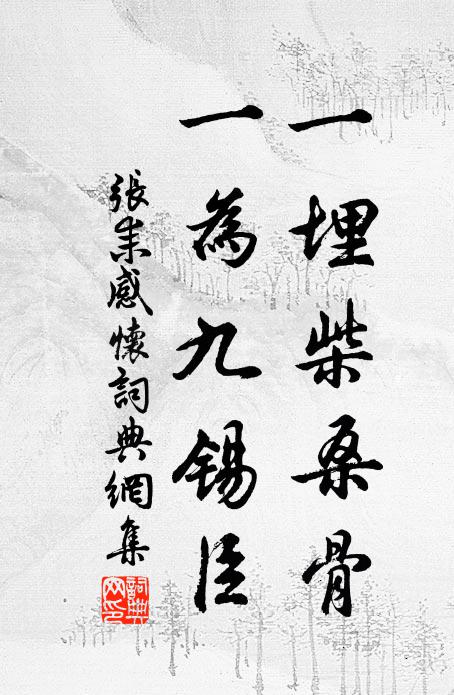 一埋柴桑骨
一為九錫臣
張耒感懷詞典網集
詞典
网印